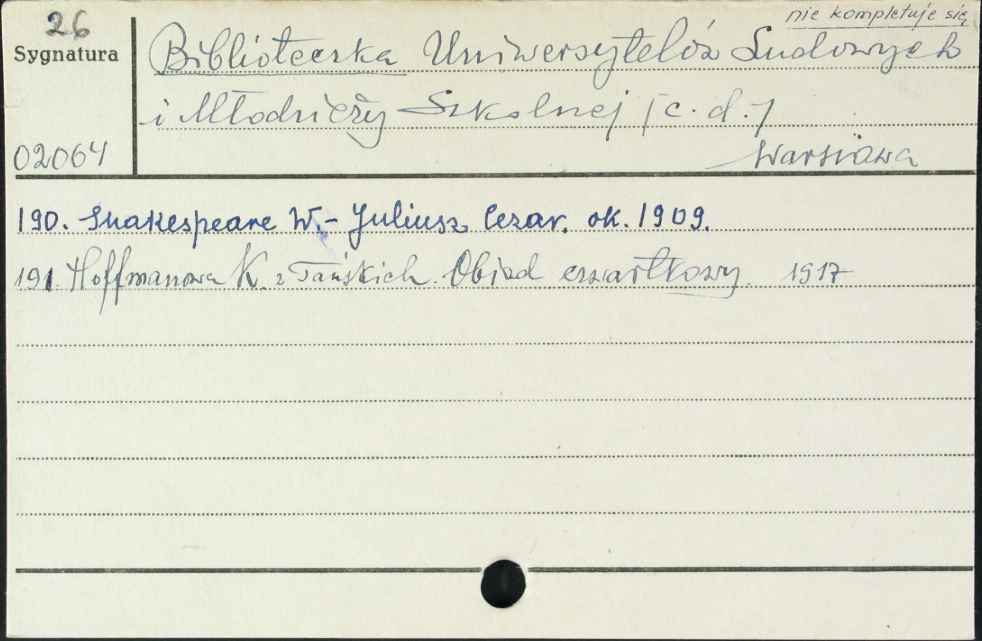 nie kompletuje się
26
Sygnatura
02064
Biblioteczka Uniwersytetów Ludowych
i Młodzieży Szkolnej /c.d./
Warszawa
190. Shakespeare W. - Juliusz Cezar. ok. 1909.
191. Hoffmanowa K. z Tańskich. Obiad czwartkowy. 1917